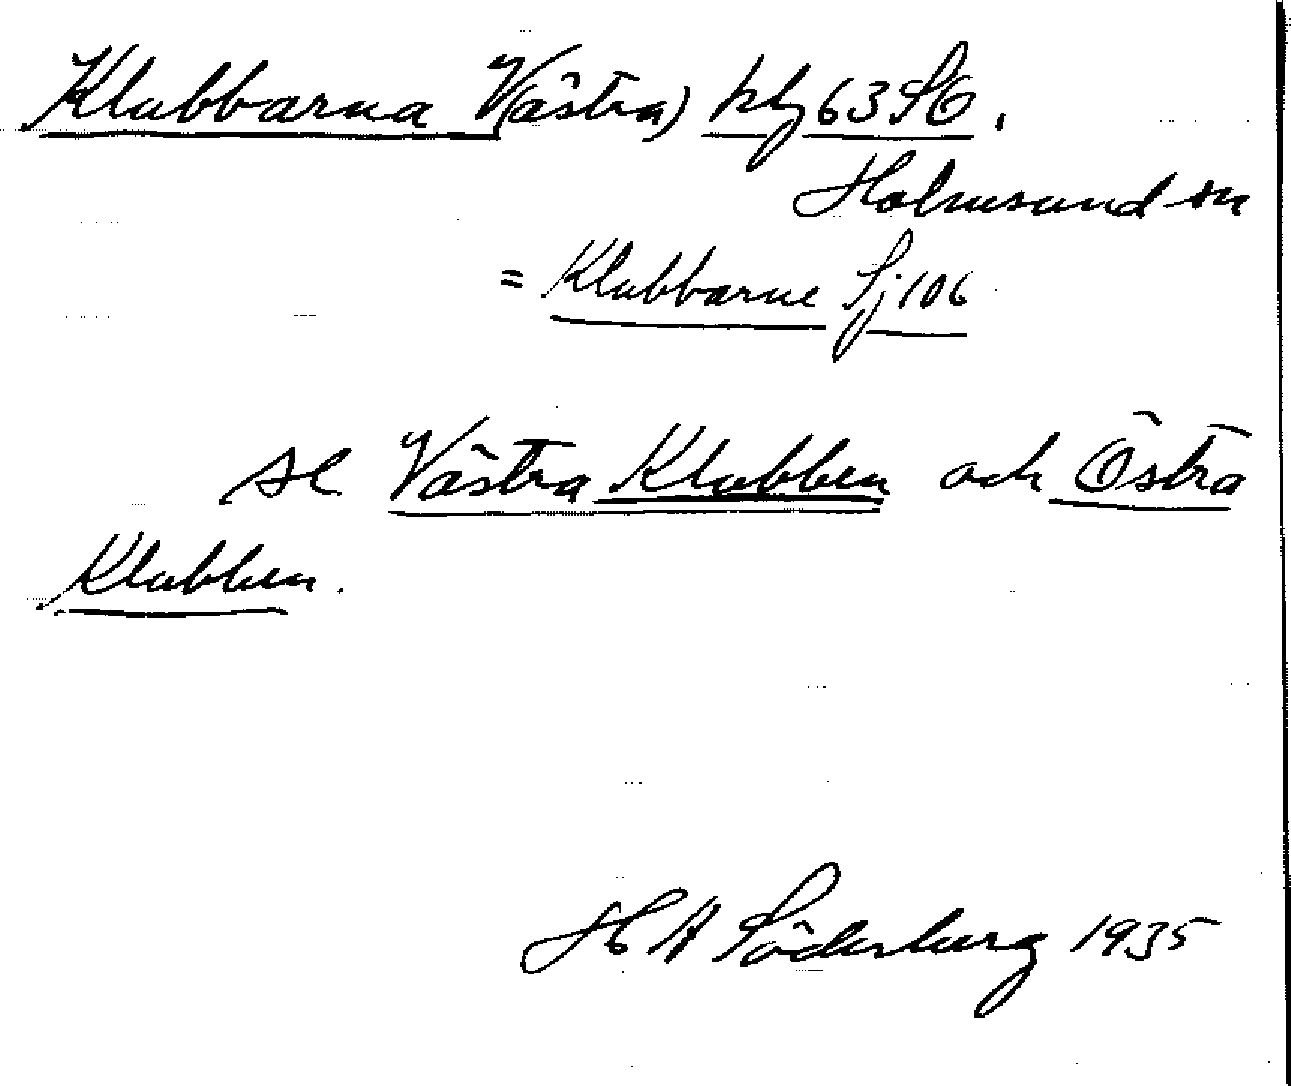 Klubbarna V(ästra) kbl 63 SO.
Holmsund sn
= Klubbarne Sj 106
se Västra Klubben och Östra
Klubben.
H A Söderberg 1935